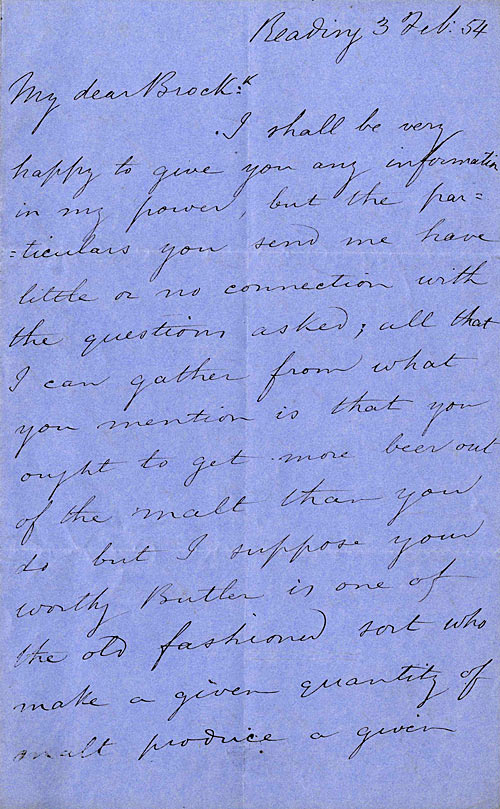 Reading 3 Feb: 54
My dear Brock:k
I shall be very
happy to give you any information
in my power, but the par=
=ticulars you send me have
little or no connection with
the questions asked; all that
I can gather from what
you mention is that you
ought to get more beer out
of the malt than you
do but I suppose your
worthy Butler is one of
the old fashioned sort who
make a given quantity of
malt produce a given